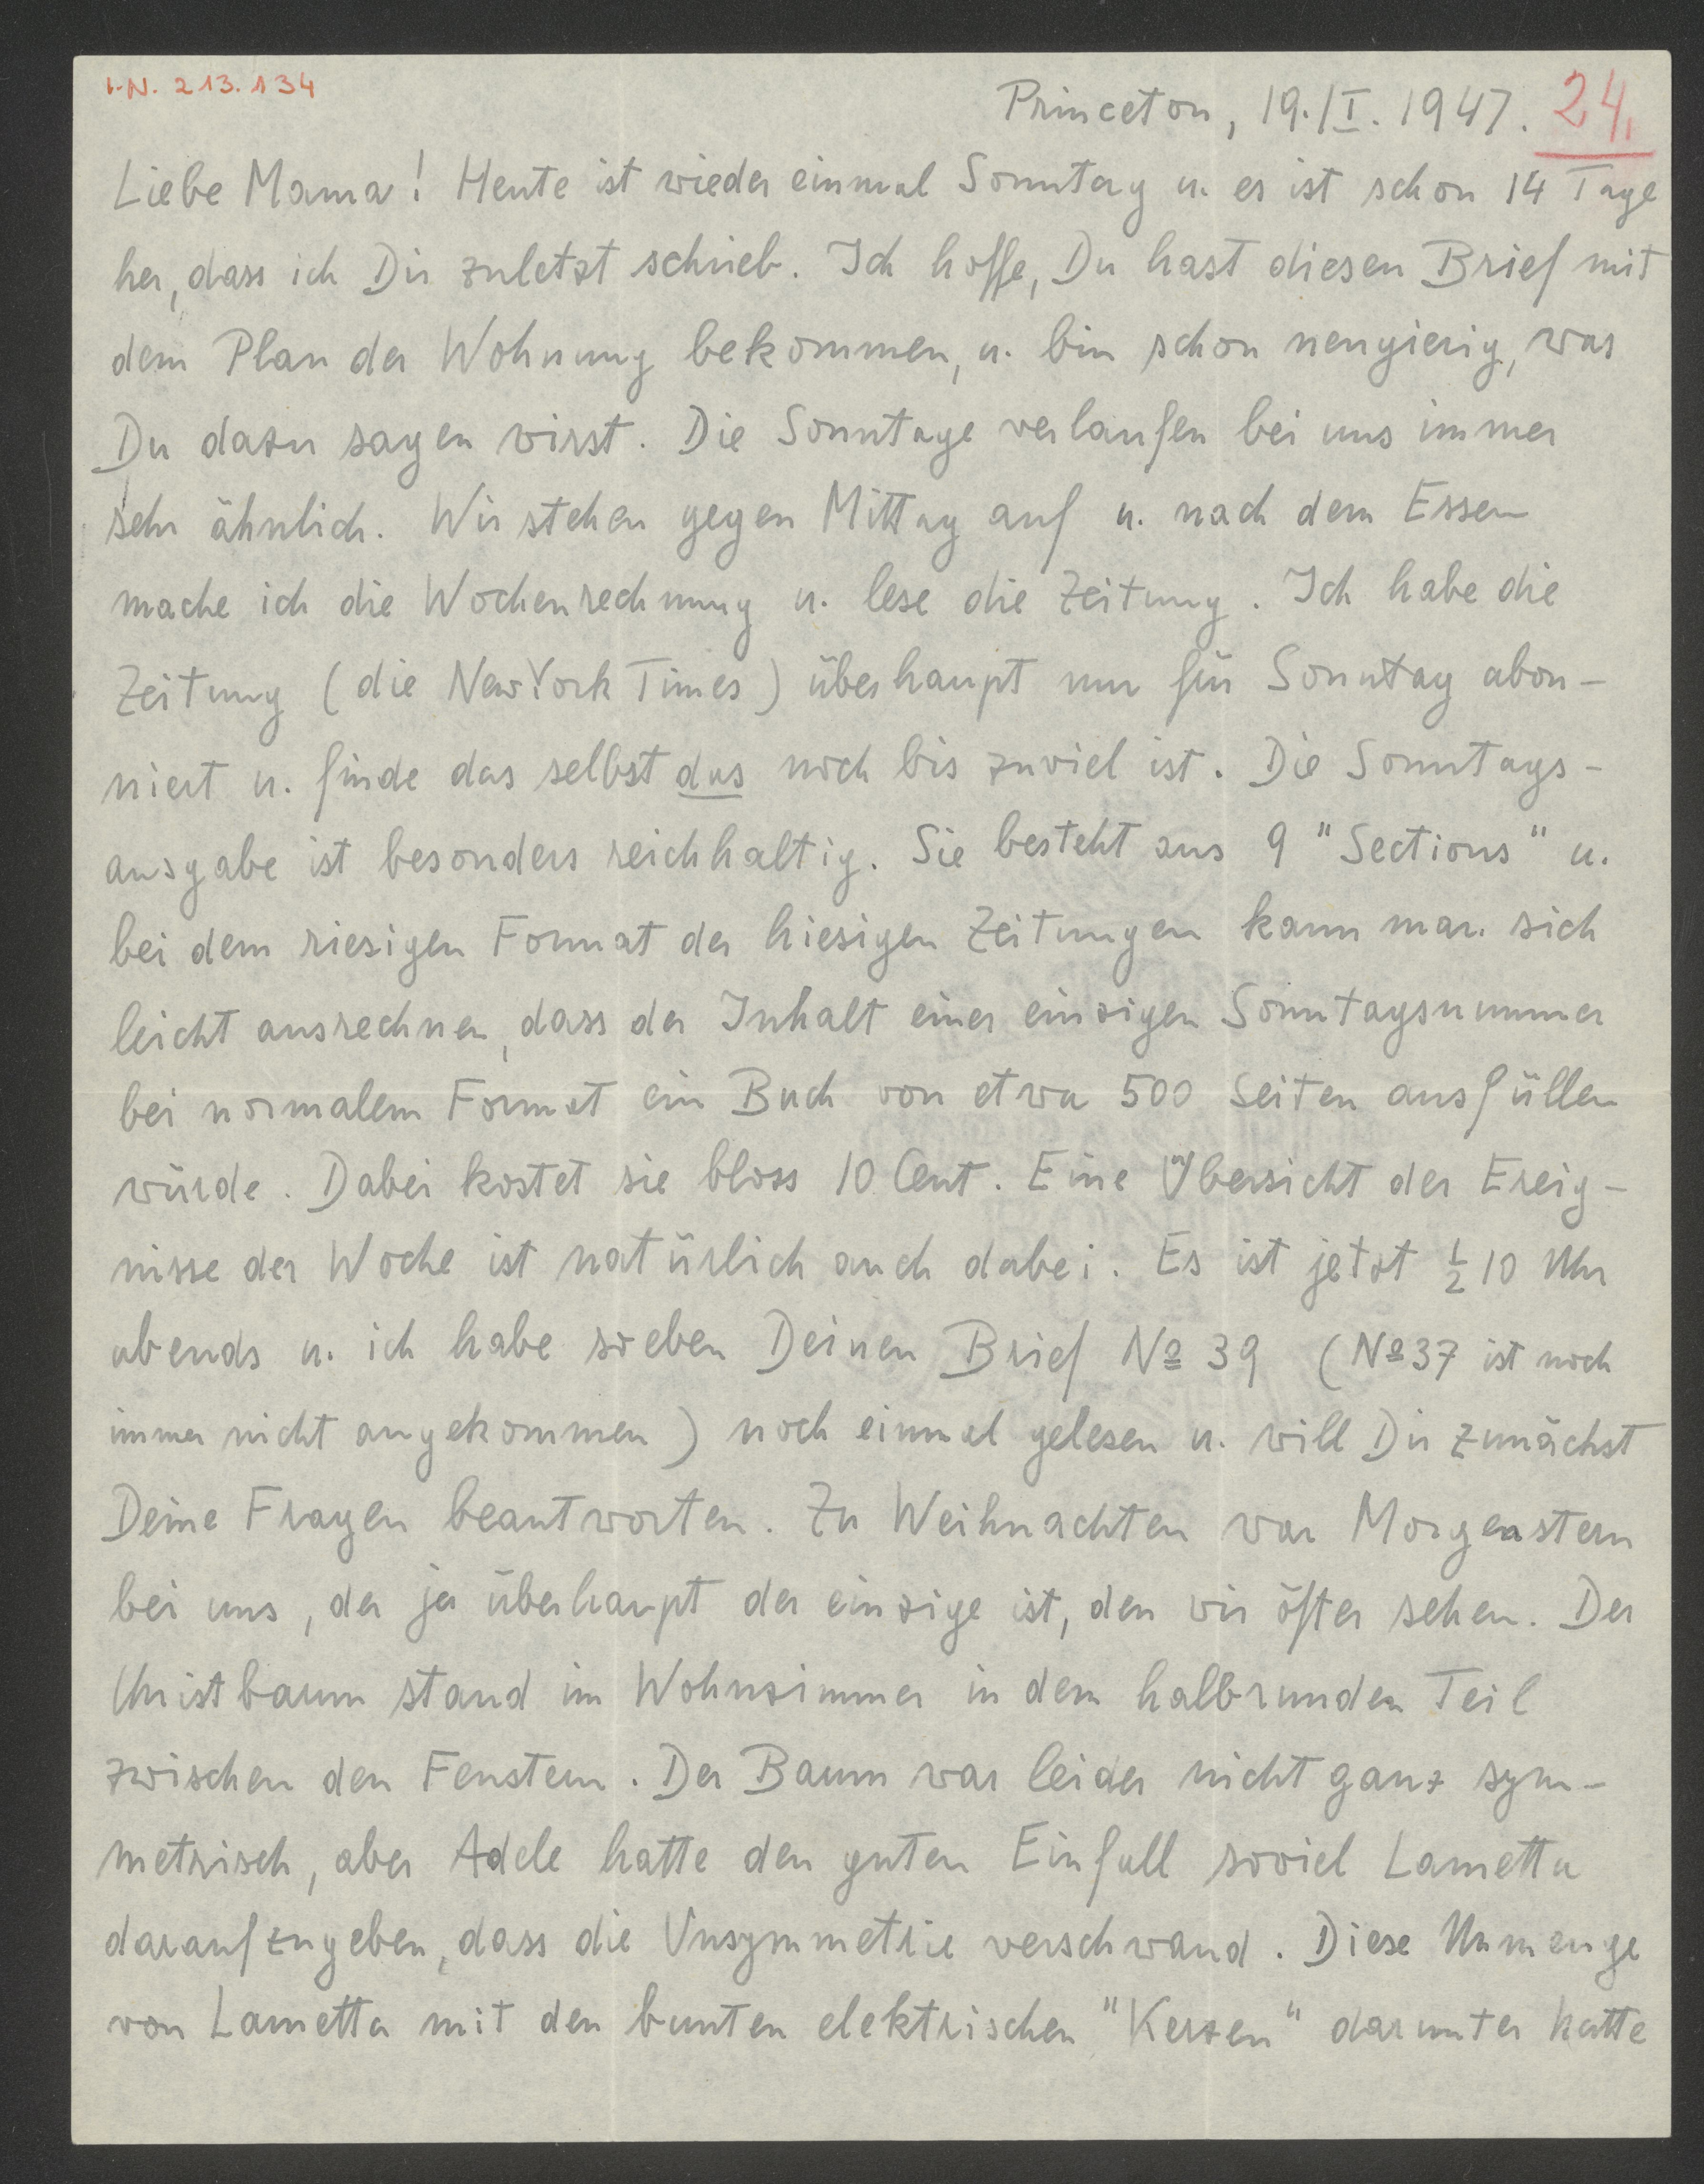 I.N. 213.134
Princeton, 19./I. 1947. 24.
Liebe Mama! Heute ist wieder einmal Sonntag u. es ist schon 14 Tage
her, dass ich Dir zuletzt schrieb. Ich hoffe, Du hast diesen Brief mit
dem Plan der Wohnung bekommen, u. bin schon neugierig, was
Du dazu sagen wirst. Die Sonntage verlaufen bei uns immer
sehr ähnlich. Wir stehen gegen Mittag auf u. nach dem Essen
mache ich die Wochenrechnung u. lese die Zeitung. Ich habe die
Zeitung (die New York Times) überhaupt nur für Sonntag abon-
niert u. finde das selbst das noch bis zuviel ist. Die Sonntags-
ausgabe ist besonders reichhaltig. Sie besteht aus 9 "Sections" u.
bei dem riesigen Format der hiesigen Zeitungen kann man sich
leicht ausrechnen, dass der Inhalt einer einzigen Sonntagsnummer
bei normalem Format ein Buch von etwa 500 Seiten ausfüllen
würde. Dabei kostet sie bloss 10 Cent. Eine Übersicht der Ereig-
nisse der Woche ist natürlich auch dabei. Es ist jetzt ½ 10 Uhr
abends u. ich habe soeben Deinen Brief № 39 (№ 37 ist noch
immer nicht angekommen) noch einmal gelesen u. will Dir zunächst
Deine Fragen beantworten. Zu Weihnachten war Morgenstern
bei uns, der ja überhaupt der einzige ist, den wir öfter sehen. Der
Christbaum stand im Wohnzimmer in dem halbrunden Teil
zwischen den Fenstern. Der Baum war leider nicht ganz sym-
metrisch, aber Adele hatte den guten Einfall soviel Lametta
daraufzugeben, dass die Unsymmetrie verschwand. Diese Unmenge
von Lametta mit den bunten elektrischen "Kerzen" darunter hatte